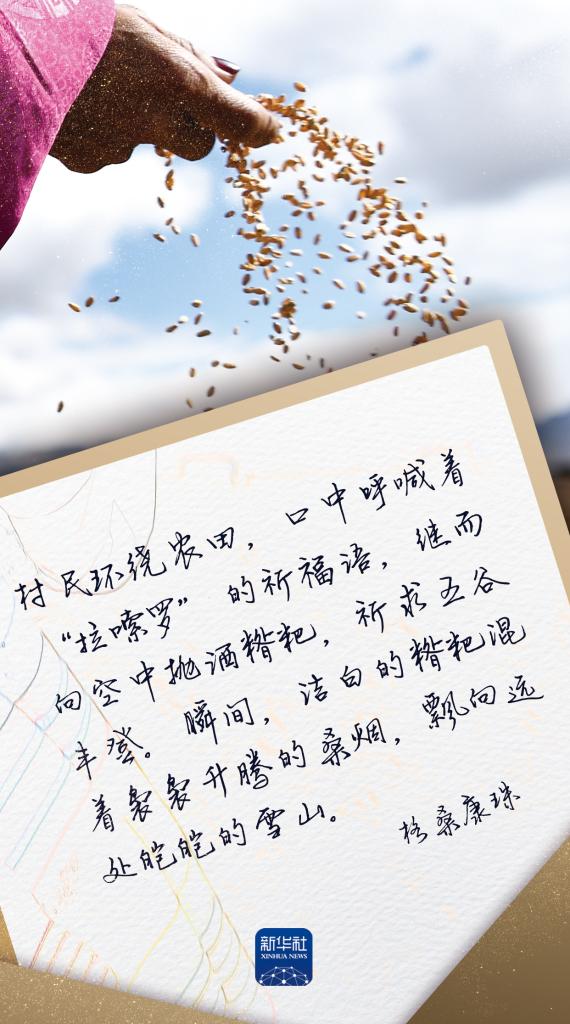 村民环绕农田，口中呼喊着
“拉嗦罗”的祈福语，继而
向空中抛洒糌粑，祈求五谷
丰登。瞬间，洁白的糌粑混
着袅袅升腾的桑烟，飘向远
处皑皑的雪山。
格桑康珠
新华社
XINHUA NEWS